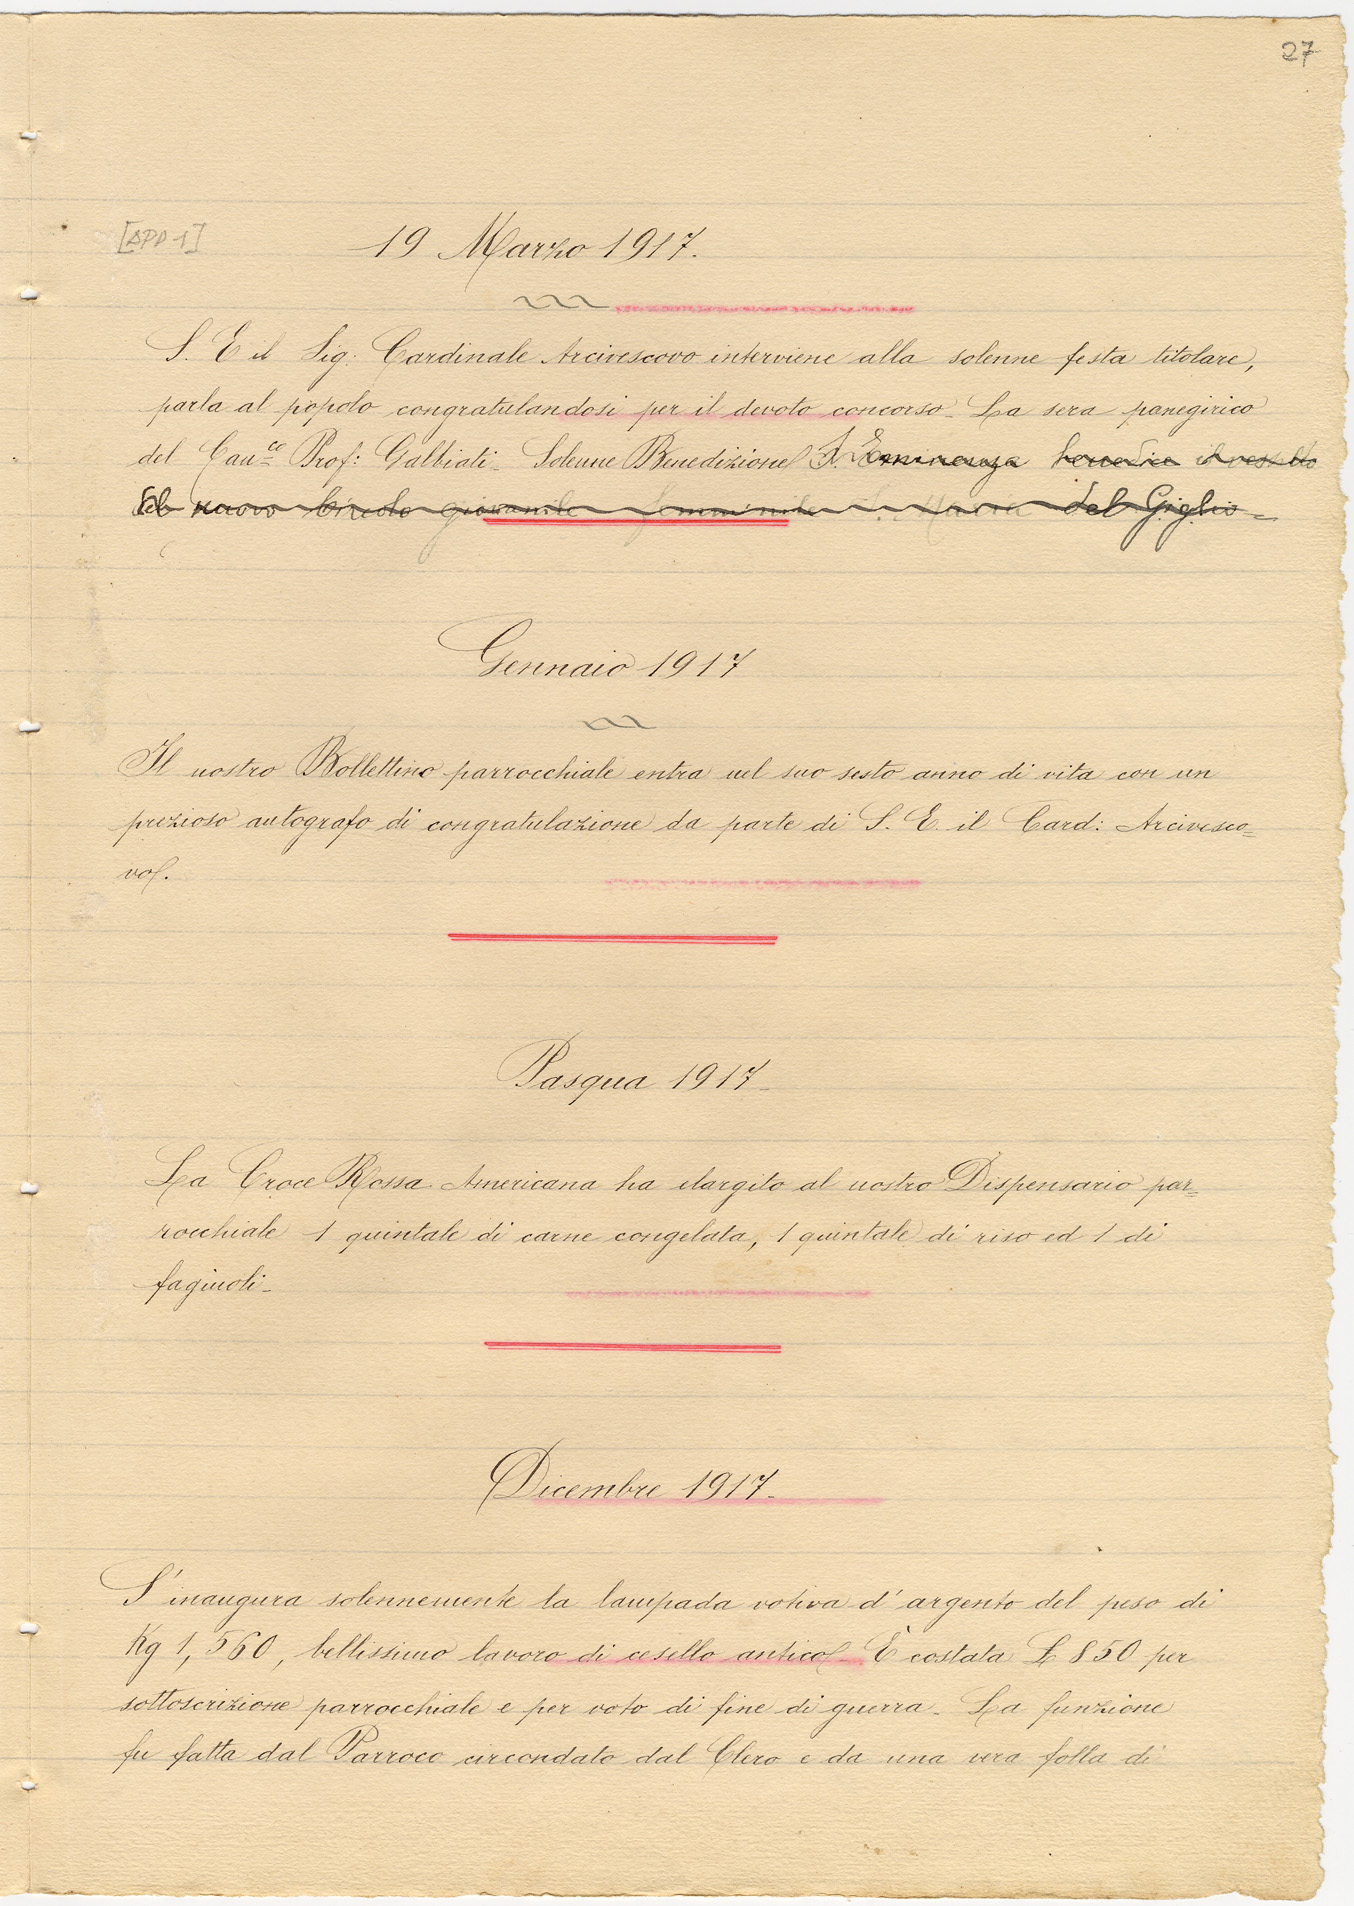 27
[APP 1]
19 Marzo 1917.
S. E il Sig: Cardinale Arcivescovo interviene alla solenne festa titolare,
parla al popolo congratulandosi per il devoto concorso. La sera panegirico
del Can.co Prof: Galbiati. Solenne Benedizione S. Eminenza il vessillo
del nuovo Circolo giovanile femminile S. Maria del Giglio =
Gennaio 1917
Il nostro Bollettino parrocchiale entra nel suo sesto anno di vita con un
prezioso autografo di congratulazione da parte di S. E. il Card: Arcivesco=
vo.
Pasqua 1917.
La Croce Rossa Americana ha elargito al nostro Dispensario par=
rocchiale 1 quintale di carne congelata, 1 quintale di riso ed 1 di
fagiuoli.
Dicembre 1917.
S'inaugura solennemente la lampada votiva d'argento del peso di
Kg 1,560, bellissimo lavoro di cesello antico. È costata £ 850 per
sottoscrizione parrocchiale e per voto di fine di guerra. La funzione
fu fatta dal Parroco circondato dal Clero e da una vera folla di